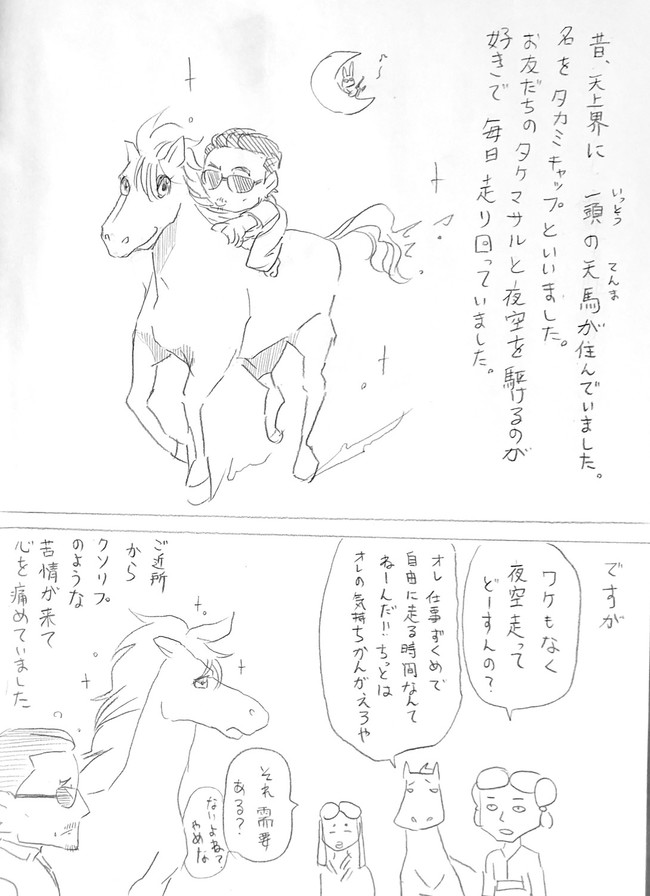 昔、天上界に一頭の天馬が住んでいました。
いっとう
てんま
名をタカミキャップといいました。
お友だちのタケマサルと夜空を駆けるのが
好きで毎日走り回っていました。
ですが
ワケもなく
夜空走って
どーすんの?
オレ仕事ずくめで
自由に走る時間なんて
ねーんだ!!ちっとは
オレの気持ちかんがえろや
それ需要
ある?
ないよねて
やめな
ご近所
から
クソリプ
のような
苦情が来て
心を痛めていました